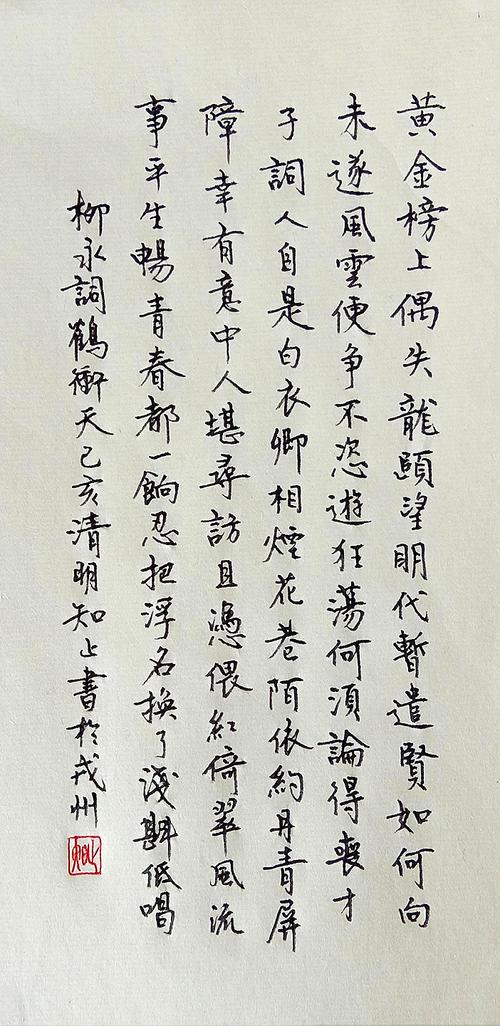 黃金榜上偶失龍頭望明代暫遺賢如何向
未遂風雲便爭不恣遊狂蕩何須論得喪才
子詞人自是白衣卿相煙花巷陌依約丹青屏
障幸有意中人堪尋訪且憑偎紅倚翠風流
事平生暢青春都一餉忍把浮名換了淺斟低唱
柳永詞鶴衝天己亥清明知上書於戎州